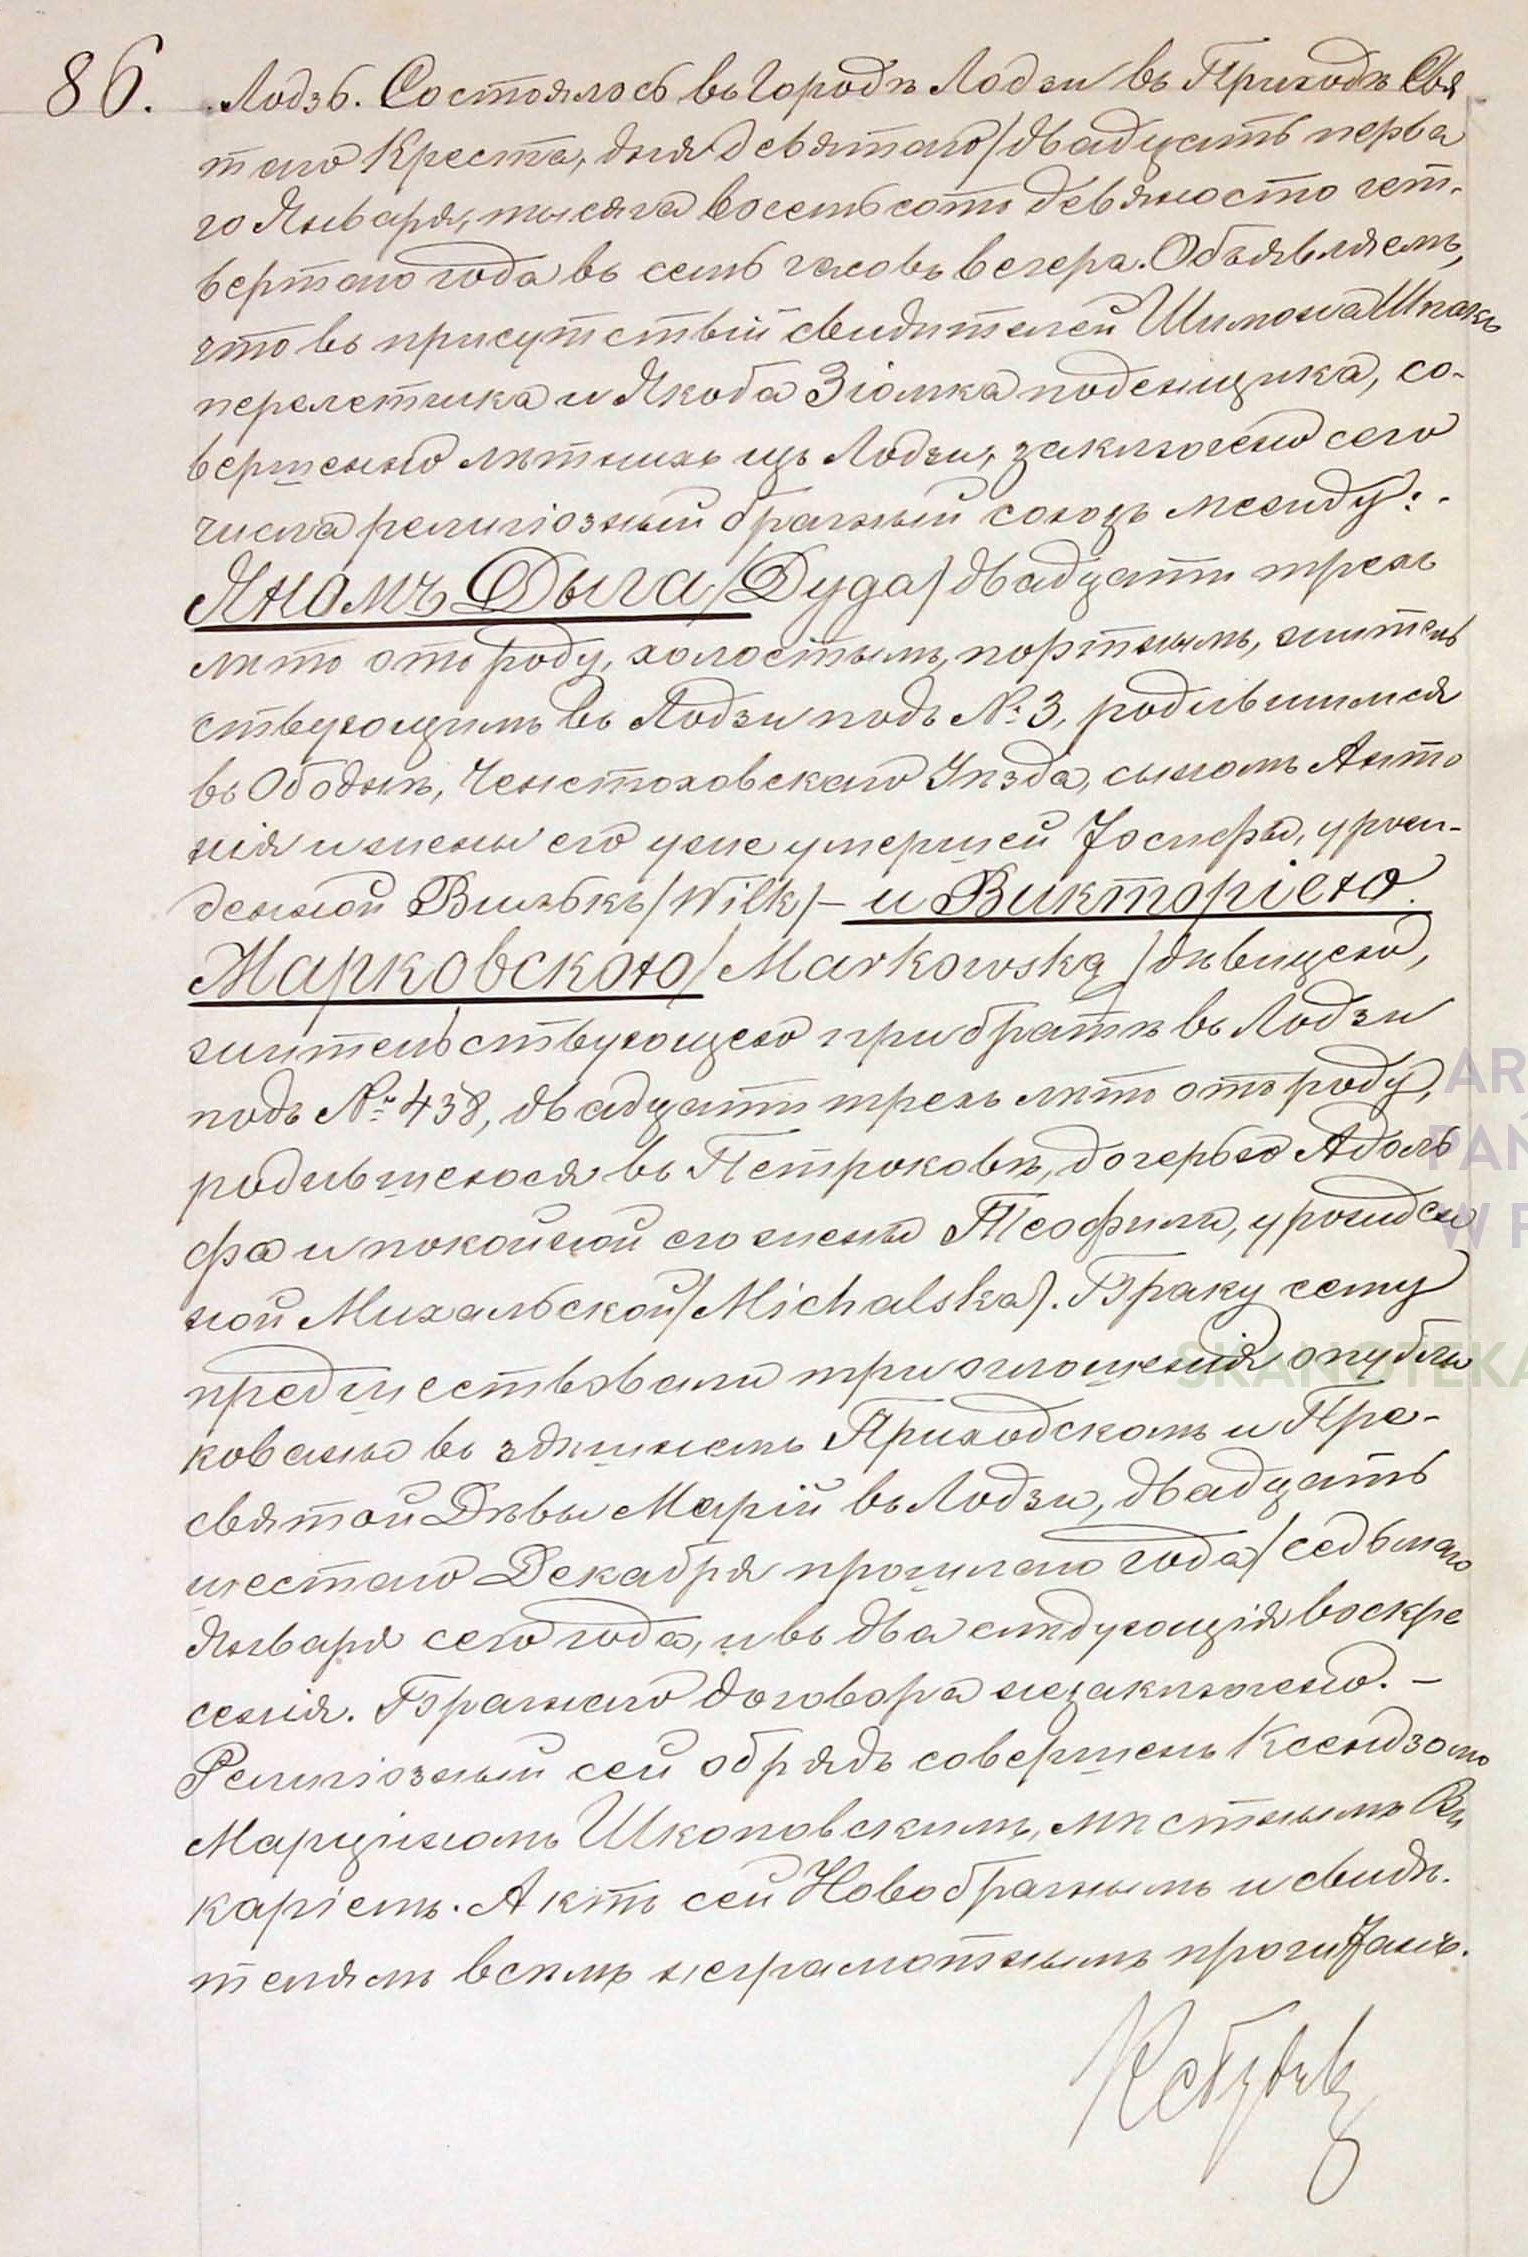 86. Лодзь. Состоялось въ Городѣ Лодзи въ Приходѣ Свя
таго Креста, дня девятаго/двадцать перва
го Января, тысяча восемьсотъ девяносто чет-
вертаго года въ семь часовъ вечера. Объявляемъ,
что въ присутствіи свидѣтелей Шимона
переплетчика и Якоба Зіомка поденщика, со-
вершенно лѣтнихъ изъ Лодзи, заключено сего
числа религіозный брачный союзъ между:-
Яномъ Дыга/Dyga/двадцати трехъ
лѣтъ отъ роду, холостымъ, портнымъ, житель
ствующимъ въ Лодзи подъ №3, родившимся
въ Ченстоховскаго Уѣзда, сыномъ Анто
нія и жены его уже умершей Іосифы, урож-
денной Вилькъ/Wilk/- и Викторіею
Марковскою/Markowską/дѣвицею,
жительствующею при братѣ въ Лодзи
подъ №438, двадцати трехъ лѣтъ отъ роду,
родившеюся въ Петроковѣ, дочерью Адоль
фа и покойной его жены Теофили, урожден
ной Михальской/Michalska/. Браку сему
предшествовали три оглошенія опубли
кованы въ здѣшнемъ Приходскомъ и Пре-
святой Дѣвы Маріи въ Лодзи, двадцать
шестаго Декабря прошлаго года/седьмаго
Января сего года, и въ два слѣдующія воскре
сенія. Брачнаго договора незаключено.-
Религіозный сей обрядъ совершенъ Ксендзомъ
Марциномъ Шкоповскимъ, мѣстнымъ Ви
каріемъ. Актъ сей Новобрачнымъ и свидѣ-
телямъ всѣмъ неграмотнымъ прочитанъ.
AR
PAŃ
W P
SKANOTEKA